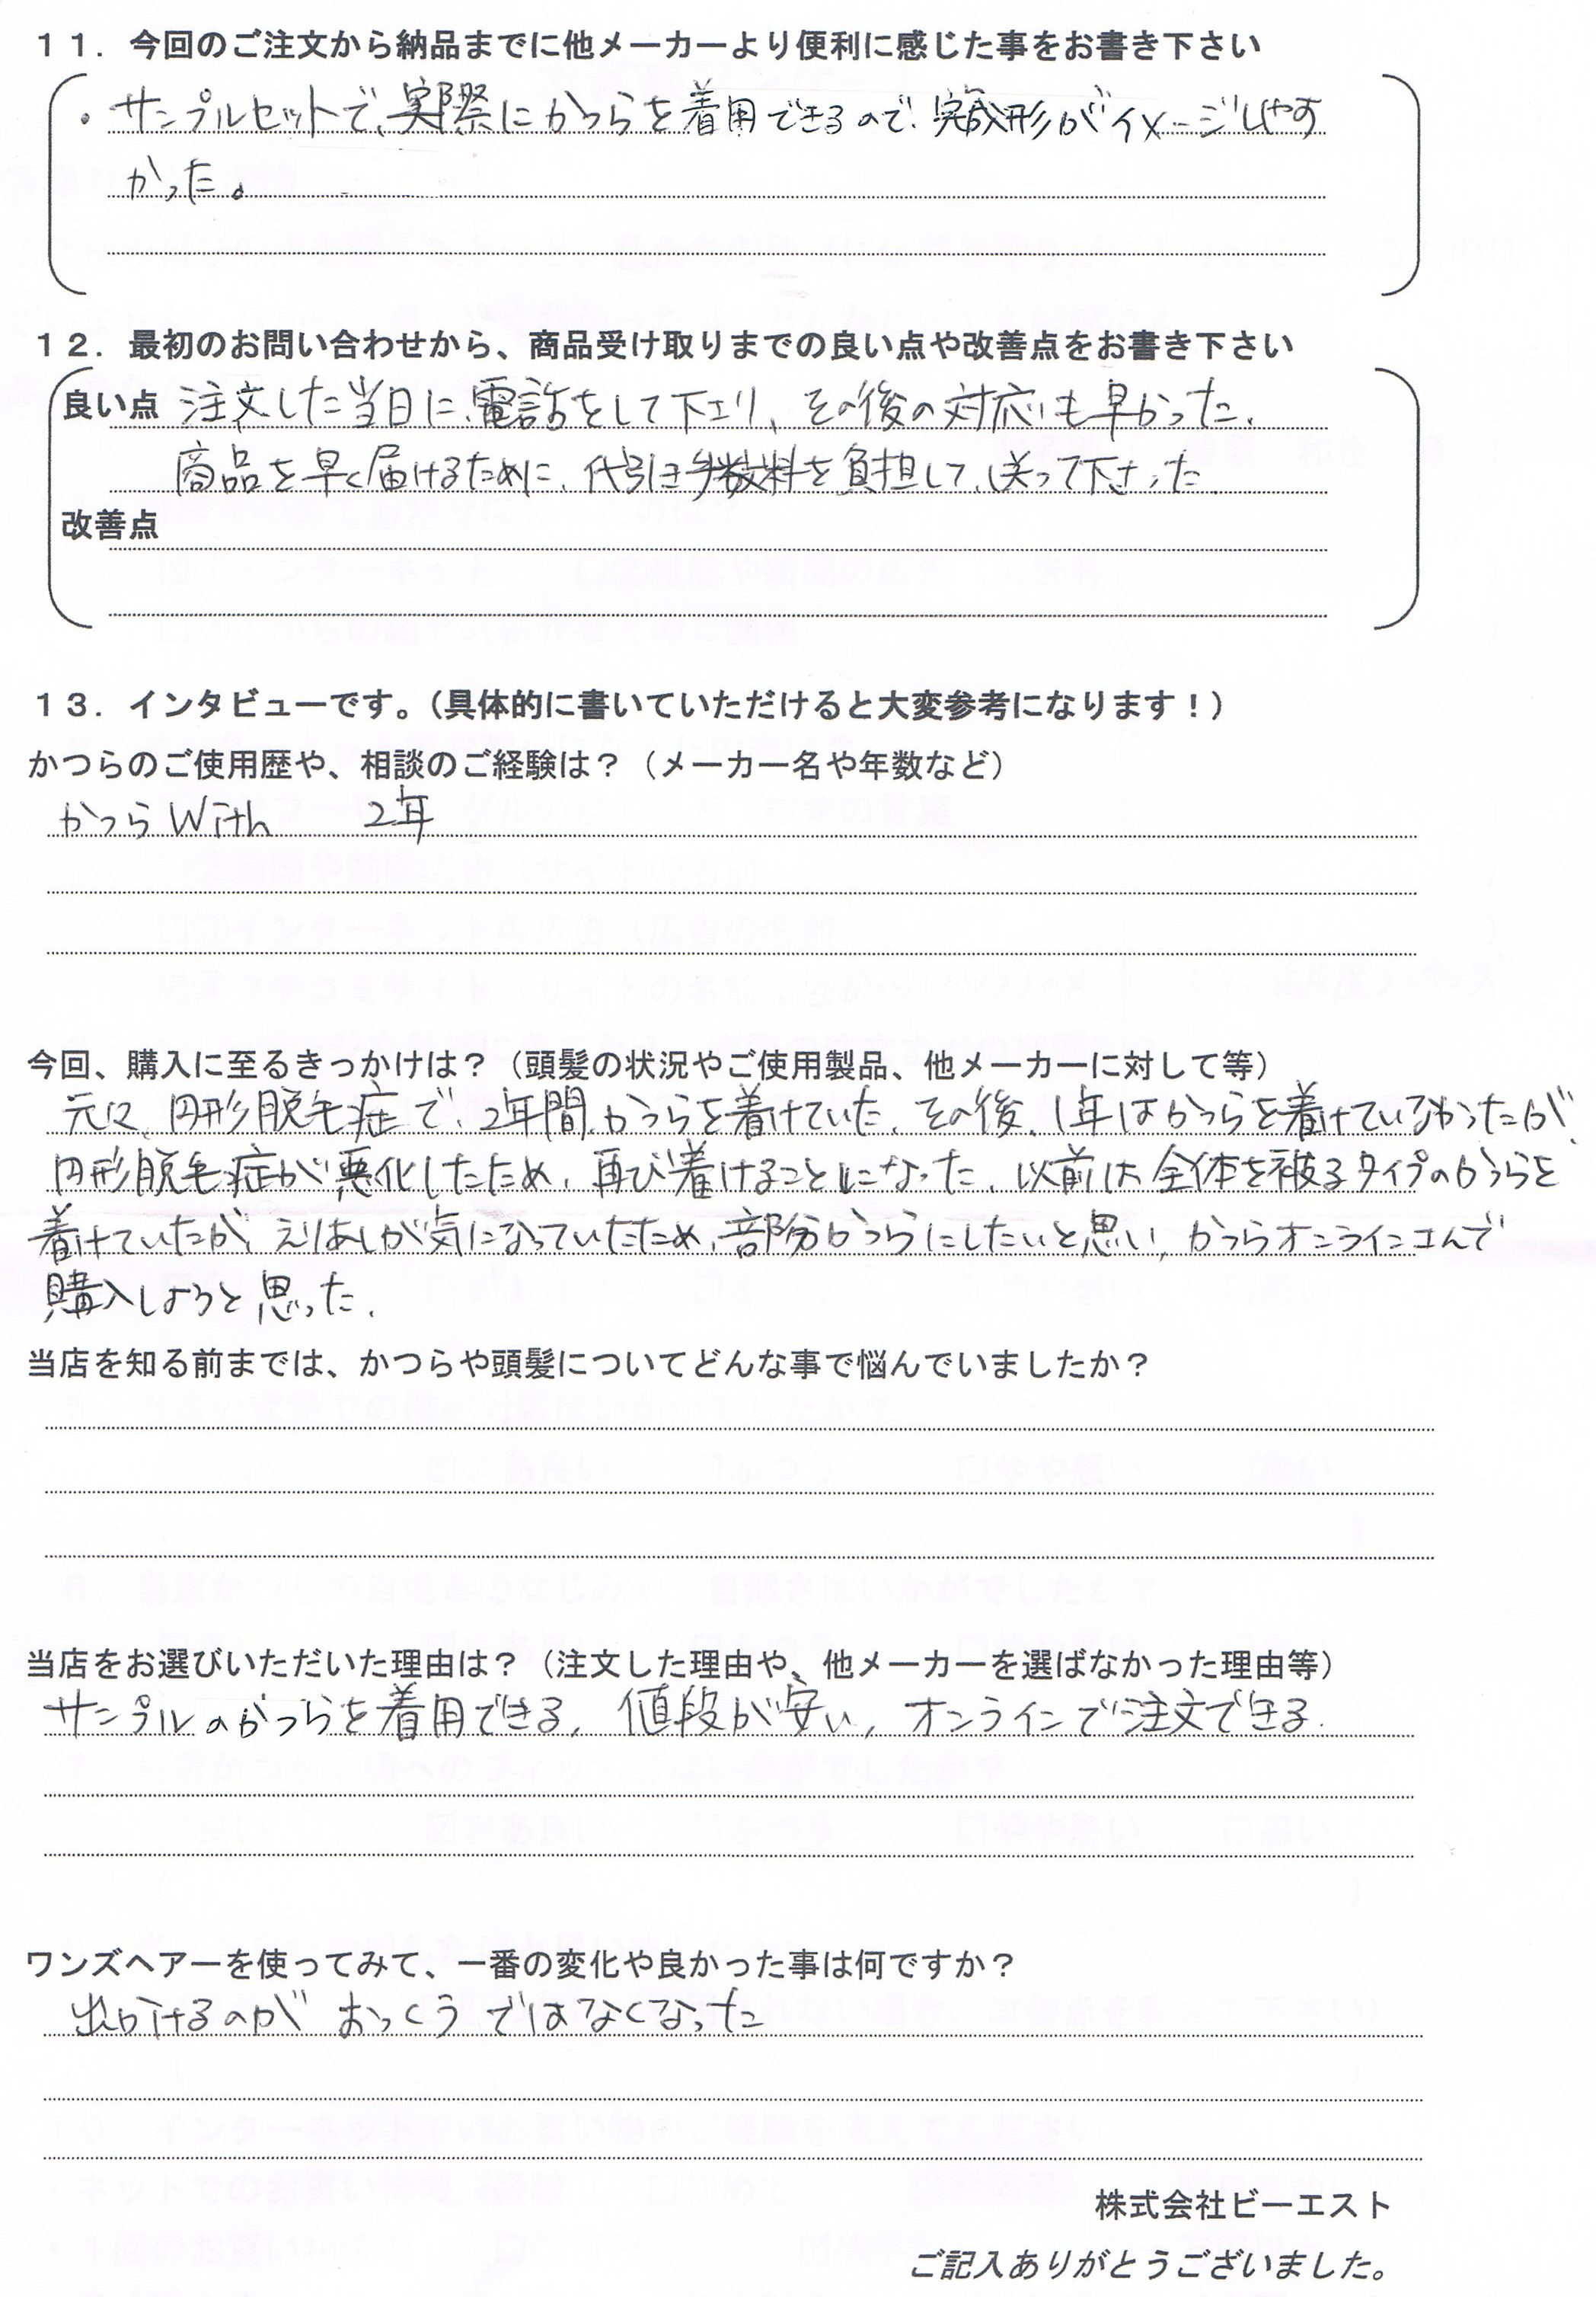 １１．今回のご注文から納品までに他メーカーより便利に感じた事をお書き下さい
・サンプルセットで、実際にかつらを着用できるので、完成形がイメージしやす
かった。
１２．最初のお問い合わせから、商品受け取りまでの良い点や改善点をお書き下さい
良い点 注文した当日に、電話をして下さり、その後の対応も早かった。
商品を早く届けるために、代引き手数料を負担して、送って下さった
改善点
１３．インタビューです。（具体的に書いていただけると大変参考になります！）
かつらのご使用歴や、相談のご経験は？（メーカー名や年数など）
かつらWith 2年
今回、購入に至るきっかけは？（頭髪の状況やご使用製品、他メーカーに対して等）
元は、円形脱毛症で、2年間、かつらを着けていた。その後、1年はかつらを着けていなかったが、
円形脱毛症が悪化したため、再び着けることになった。以前は全体を被るタイプのかつらを
着けていたが、えりあしが気になっていたため、部分かつらにしたいと思い、かつらオンラインコムで
購入しようと思った。
当店を知る前までは、かつらや頭髪についてどんな事で悩んでいましたか？
当店をお選びいただいた理由は？（注文した理由や、他メーカーを選ばなかった理由等）
サンプルのかつらを着用できる、値段が安い、オンラインで注文できる。
ワンズヘアーを使ってみて、一番の変化や良かった事は何ですか？
出かけるのが おっくう ではなくなった
株式会社ビーエスト
ご記入ありがとうございました。